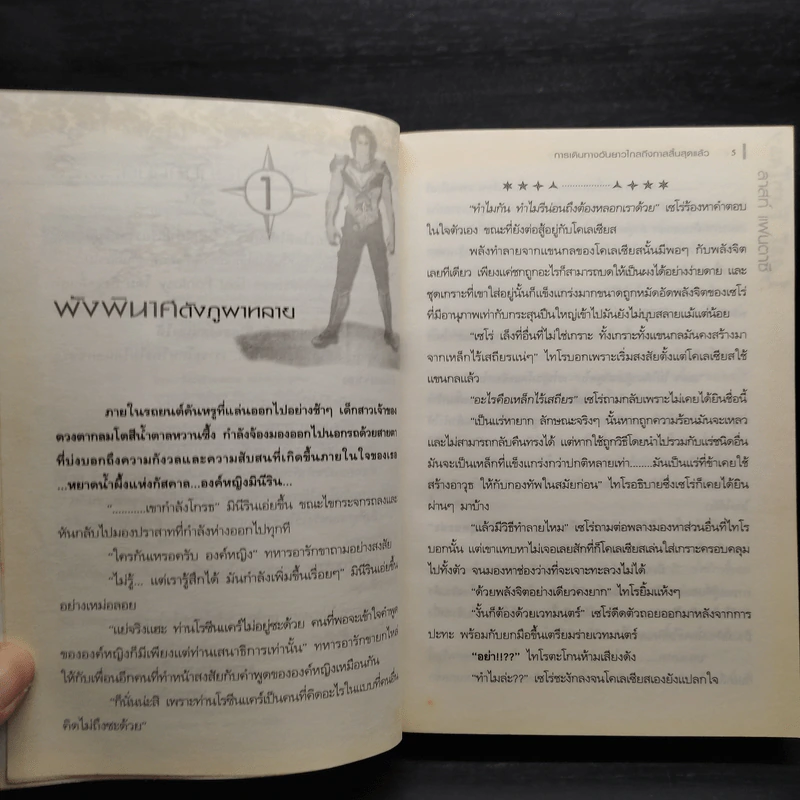 1
พังพินาศดังภูผาทลาย
ภายในรถยนต์คันหรูที่แล่นออกไปอย่างช้าๆ เด็กสาวเจ้าของ
ดวงตากลมโตสีน้ำตาลหวานซึ้ง กำลังจ้องมองออกไปนอกรถด้วยสายตา
ที่บ่งบอกถึงความกังวลและความสับสนที่เกิดขึ้นภายในใจของเธอ
...หยาดน้ำผึ้งแห่งกัสตาล...องค์หญิงมินีริน...
“...........เขากำลังโกรธ” มินีรินเอ่ยขึ้น ขณะไขกระจกรถลงและ
หันกลับไปมองปราสาทที่กำลังห่างออกไปทุกที
“ใครกันเหรอครับ องค์หญิง” ทหารอารักขาถามอย่างสงสัย
“ไม่รู้... แต่เรารู้สึกได้ มันกำลังเพิ่มขึ้นเรื่อยๆ” มินีรินเอ่ยขึ้น
อย่างเหม่อลอย
“แย่จริงแฮะ ท่านโรซีนแคร์ไม่อยู่ซะด้วย คนที่พอจะเข้าใจคำพูด
ขององค์หญิงก็มีเพียงแต่ท่านเสนาธิการเท่านั้น” ทหารอารักขายกไหล่
ให้กับเพื่อนอีกคนที่ทำหน้าสงสัยกับคำพูดขององค์หญิงเหมือนกัน
“ก็นั่นน่ะสิ เพราะท่านโรซีนแคร์เป็นคนที่คิดอะไรในแบบที่คนอื่น
คิดไม่ถึงซะด้วย”
การเดินทางอันยาวไกลถึงกาลสิ้นสุดแล้ว 5
“ทำไมกัน ทำไมรีน่อนถึงต้องหลอกเราด้วย” เซโร่ร้องหาคำตอบ
ในใจตัวเอง ขณะที่ยังต่อสู้อยู่กับโคเลเซียส
พลังทำลายจากแขนกลของโคเลเซียสนั้นมีพอๆ กับพลังจิต
เลยทีเดียว เพียงแค่ชกถูกอะไรก็สามารถบดให้เป็นผงได้อย่างง่ายดาย และ
ชุดเกราะที่เขาใส่อยู่นั้นก็แข็งแกร่งมากขนาดถูกหมัดอัดพลังจิตของเซโร่
ที่มีอานุภาพเท่ากับกระสุนปืนใหญ่เข้าไปมันยังไม่บุบสลายแม้แต่น้อย
“เซโร่ เล็งที่อื่นที่ไม่ใช่เกราะ ทั้งเกราะทั้งแขนกลมันคงสร้างมา
จากเหล็กไร้เสถียรแน่ๆ” ไทโรบอกเพราะเริ่มสงสัยตั้งแต่โคเลเซียสใช้
แขนกลแล้ว
“อะไรคือเหล็กไร้เสถียร” เซโร่ถามกลับเพราะไม่เคยได้ยินชื่อนี้
“เป็นแร่หายาก ลักษณะจริงๆ นั้นหากถูกความร้อนมันจะเหลว
และไม่สามารถกลับคืนทรงได้ แต่หากใช้ถูกวิธีโดยนำไปรวมกับแร่ชนิดอื่น
มันจะเป็นเหล็กที่แข็งแกร่งกว่าปกติหลายเท่า........มันเป็นแร่ที่ข้าเคยใช้
สร้างอาวุธ ให้กับกองทัพในสมัยก่อน” ไทโรอธิบายซึ่งเซโร่ก็เคยได้ยิน
ผ่านๆ มาบ้าง
“แล้วมีวิธีทำลายไหม” เซโร่ถามต่อพลางมองหาส่วนอื่นที่ไทโร
บอกนั้น แต่เขาแทบหาไม่เจอเลยสักที่ก็โคเลเซียสเล่นใส่เกราะครอบคลุม
ไปทั้งตัว จนมองหาช่องว่างที่จะเจาะทะลวงไม่ได้
“ด้วยพลังจิตอย่างเดียวคงยาก” ไทโรยิ้มแห้งๆ
“งั้นก็ต้องด้วยเวทมนตร์” เซโร่ดีดตัวถอยออกมาหลังจากการ
ปะทะ พร้อมกับยกมือขึ้นเตรียมร่ายเวทมนตร์
“อย่า!!??” ไทโรตะโกนห้ามเสียงดัง
“ทำไมล่ะ??” เซโร่ชะงักลงจนโคเลเซียสเองยังแปลกใจ